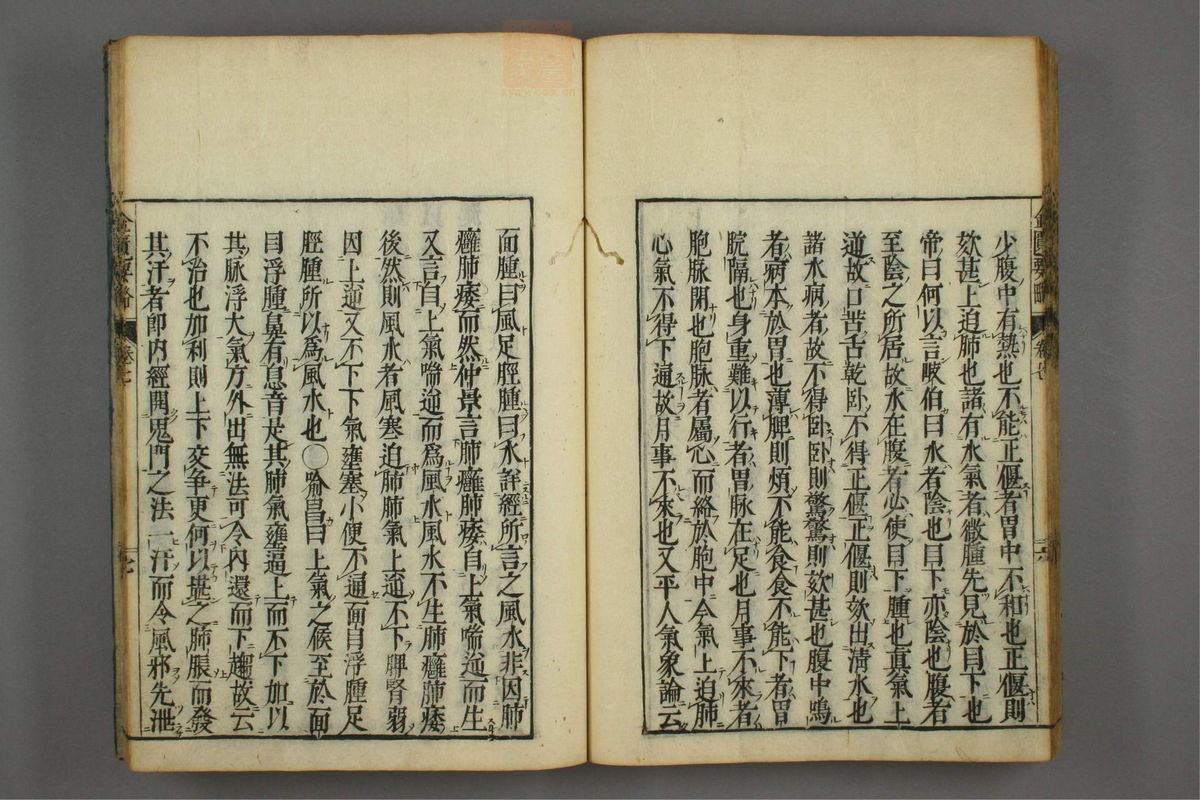 少腹中有熱也不能正偃者胃中不和也正偃則
欬甚上迫肺也諸有水氣者微腫先見於目下也
帝曰何以言岐伯曰水者陰也目下亦陰也腹者
至陰之所居故水在腹者必使目下腫也真氣上
逆故口苦舌乾卧不得正偃正偃則欬出清水也
諸水病者故不得卧卧則驚驚則欬甚也腹中鳴
者病本於胃也薄脾則煩不能食食不能下者胃
脘隔也身重難以行者胃脉在足也月事不來者
胞脉閉也胞脉者屬心而絡於胞中今氣上迫肺
心氣不得下通故月事不來也又平人氣象論云
面腫曰風足脛腫曰水詳經所言之風水非因肺
癰肺痿而然仲景言肺癰肺痿自上氣喘逆而生
又言自上氣喘逆而為風水風水不生肺癰肺痿
後然則風水者風寒迫肺肺氣上逆不下脾腎弱
因上逆又不下下氣壅塞小便不通面目浮腫足
脛腫所以為風水也○喻昌曰上氣之候至於面
目浮腫鼻有息音是其肺氣壅逼上而不下加以
其脉浮大氣方外出無法可令內還而下趨故云
不治也加利則上下交爭更何以堪之肺脹而發
其汗者即內經開鬼門之法一汗而令風邪先泄
金匱要略